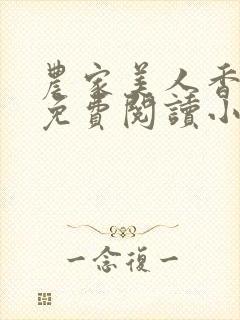 農家美人香
免費閱讀小
一念復一